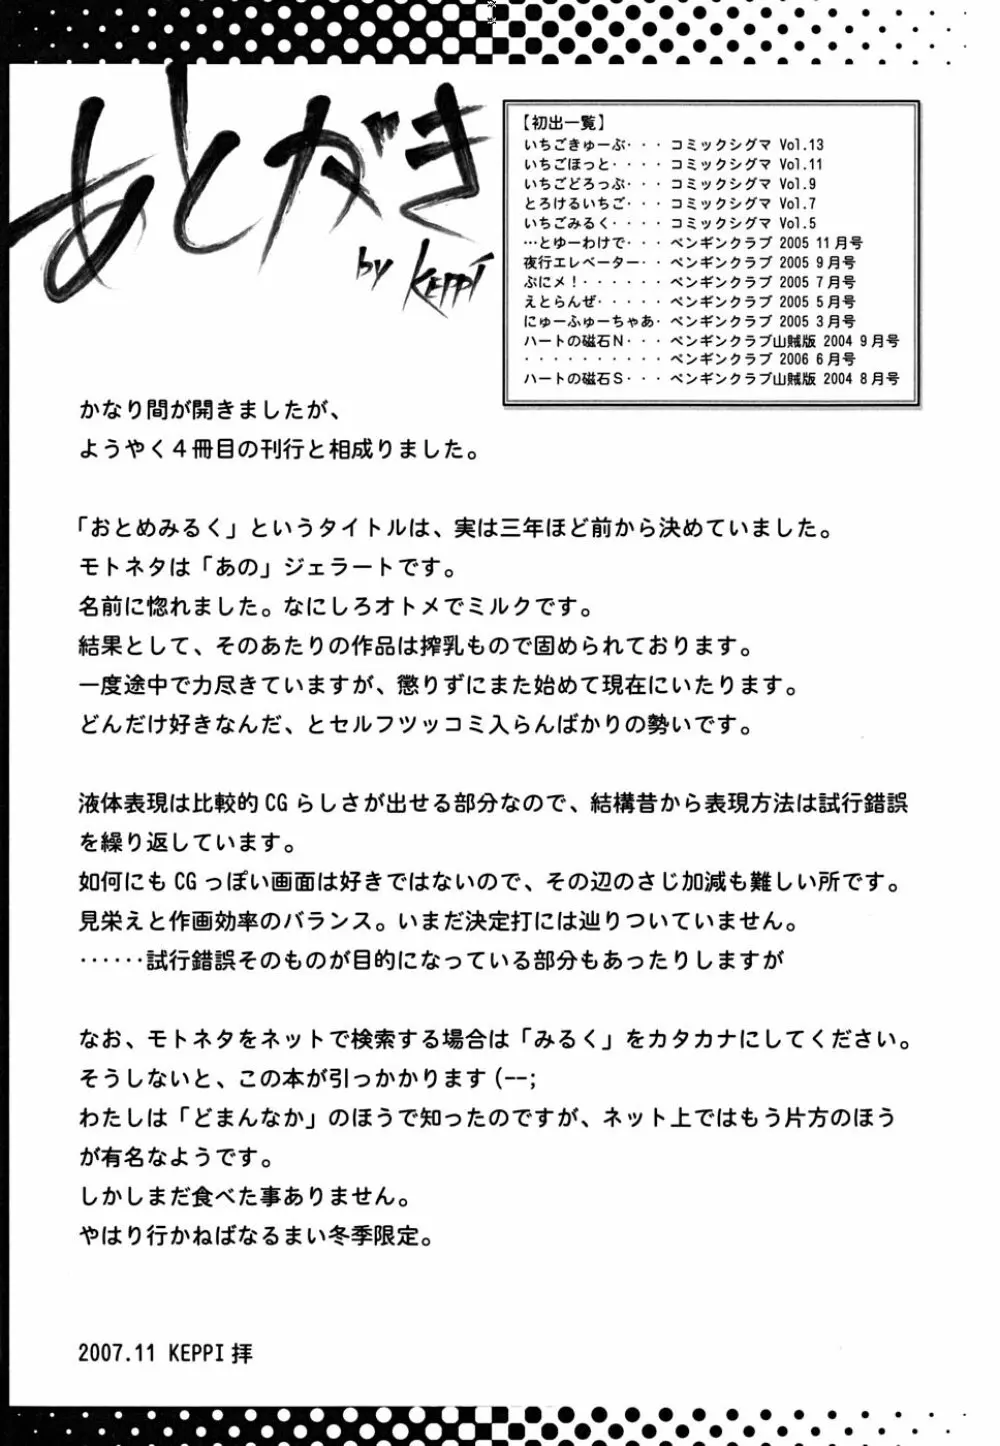 あとがき
by KEPPI
【初出一覧】
いちごきゅーぶ・・・ コミックシグマ Vol.13
いちごほっと・・・・ コミックシグマ Vol.11
いちごどろっぷ・・・ コミックシグマ Vol.9
とろけるいちご・・・ コミックシグマ Vol.7
いちごみるく・・・・ コミックシグマ Vol.5
…とゆーわけで・・・ ペンギンクラブ 2005 11月号
夜行エレベーター・・ ペンギンクラブ 2005 9月号
ぷにメ！・・・・・・ ペンギンクラブ 2005 7月号
えとらんぜ・・・・・ ペンギンクラブ 2005 5月号
にゅーふゅーちゃあ・ ペンギンクラブ 2005 3月号
ハートの磁石Ｎ・・・ ペンギンクラブ山賊版 2004 9月号
・・・・・・・・・・ ペンギンクラブ 2006 6月号
ハートの磁石Ｓ・・・ ペンギンクラブ山賊版 2004 8月号
かなり間が開きましたが、
ようやく４冊目の刊行と相成りました。
「おとめみるく」というタイトルは、実は三年ほど前から決めていました。
モトネタは「あの」ジェラートです。
名前に惚れました。なにしろオトメでミルクです。
結果として、そのあたりの作品は搾乳もので固められております。
一度途中で力尽きていますが、懲りずにまた始めて現在にいたります。
どんだけ好きなんだ、とセルフツッコミ入らんばかりの勢いです。
液体表現は比較的 CG らしさが出せる部分なので、結構昔から表現方法は試行錯誤
を繰り返しています。
如何にも CG っぽい画面は好きではないので、その辺のさじ加減も難しい所です。
見栄えと作画効率のバランス。いまだ決定打には辿りついていません。
……試行錯誤そのものが目的になっている部分もあったりしますが
なお、モトネタをネットで検索する場合は「みるく」をカタカナにしてください。
そうしないと、この本が引っかかります(--;
わたしは「どまんなか」のほうで知ったのですが、ネット上ではもう片方のほう
が有名なようです。
しかしまだ食べた事ありません。
やはり行かねばなるまい冬季限定。
2007.11 KEPPI 拝